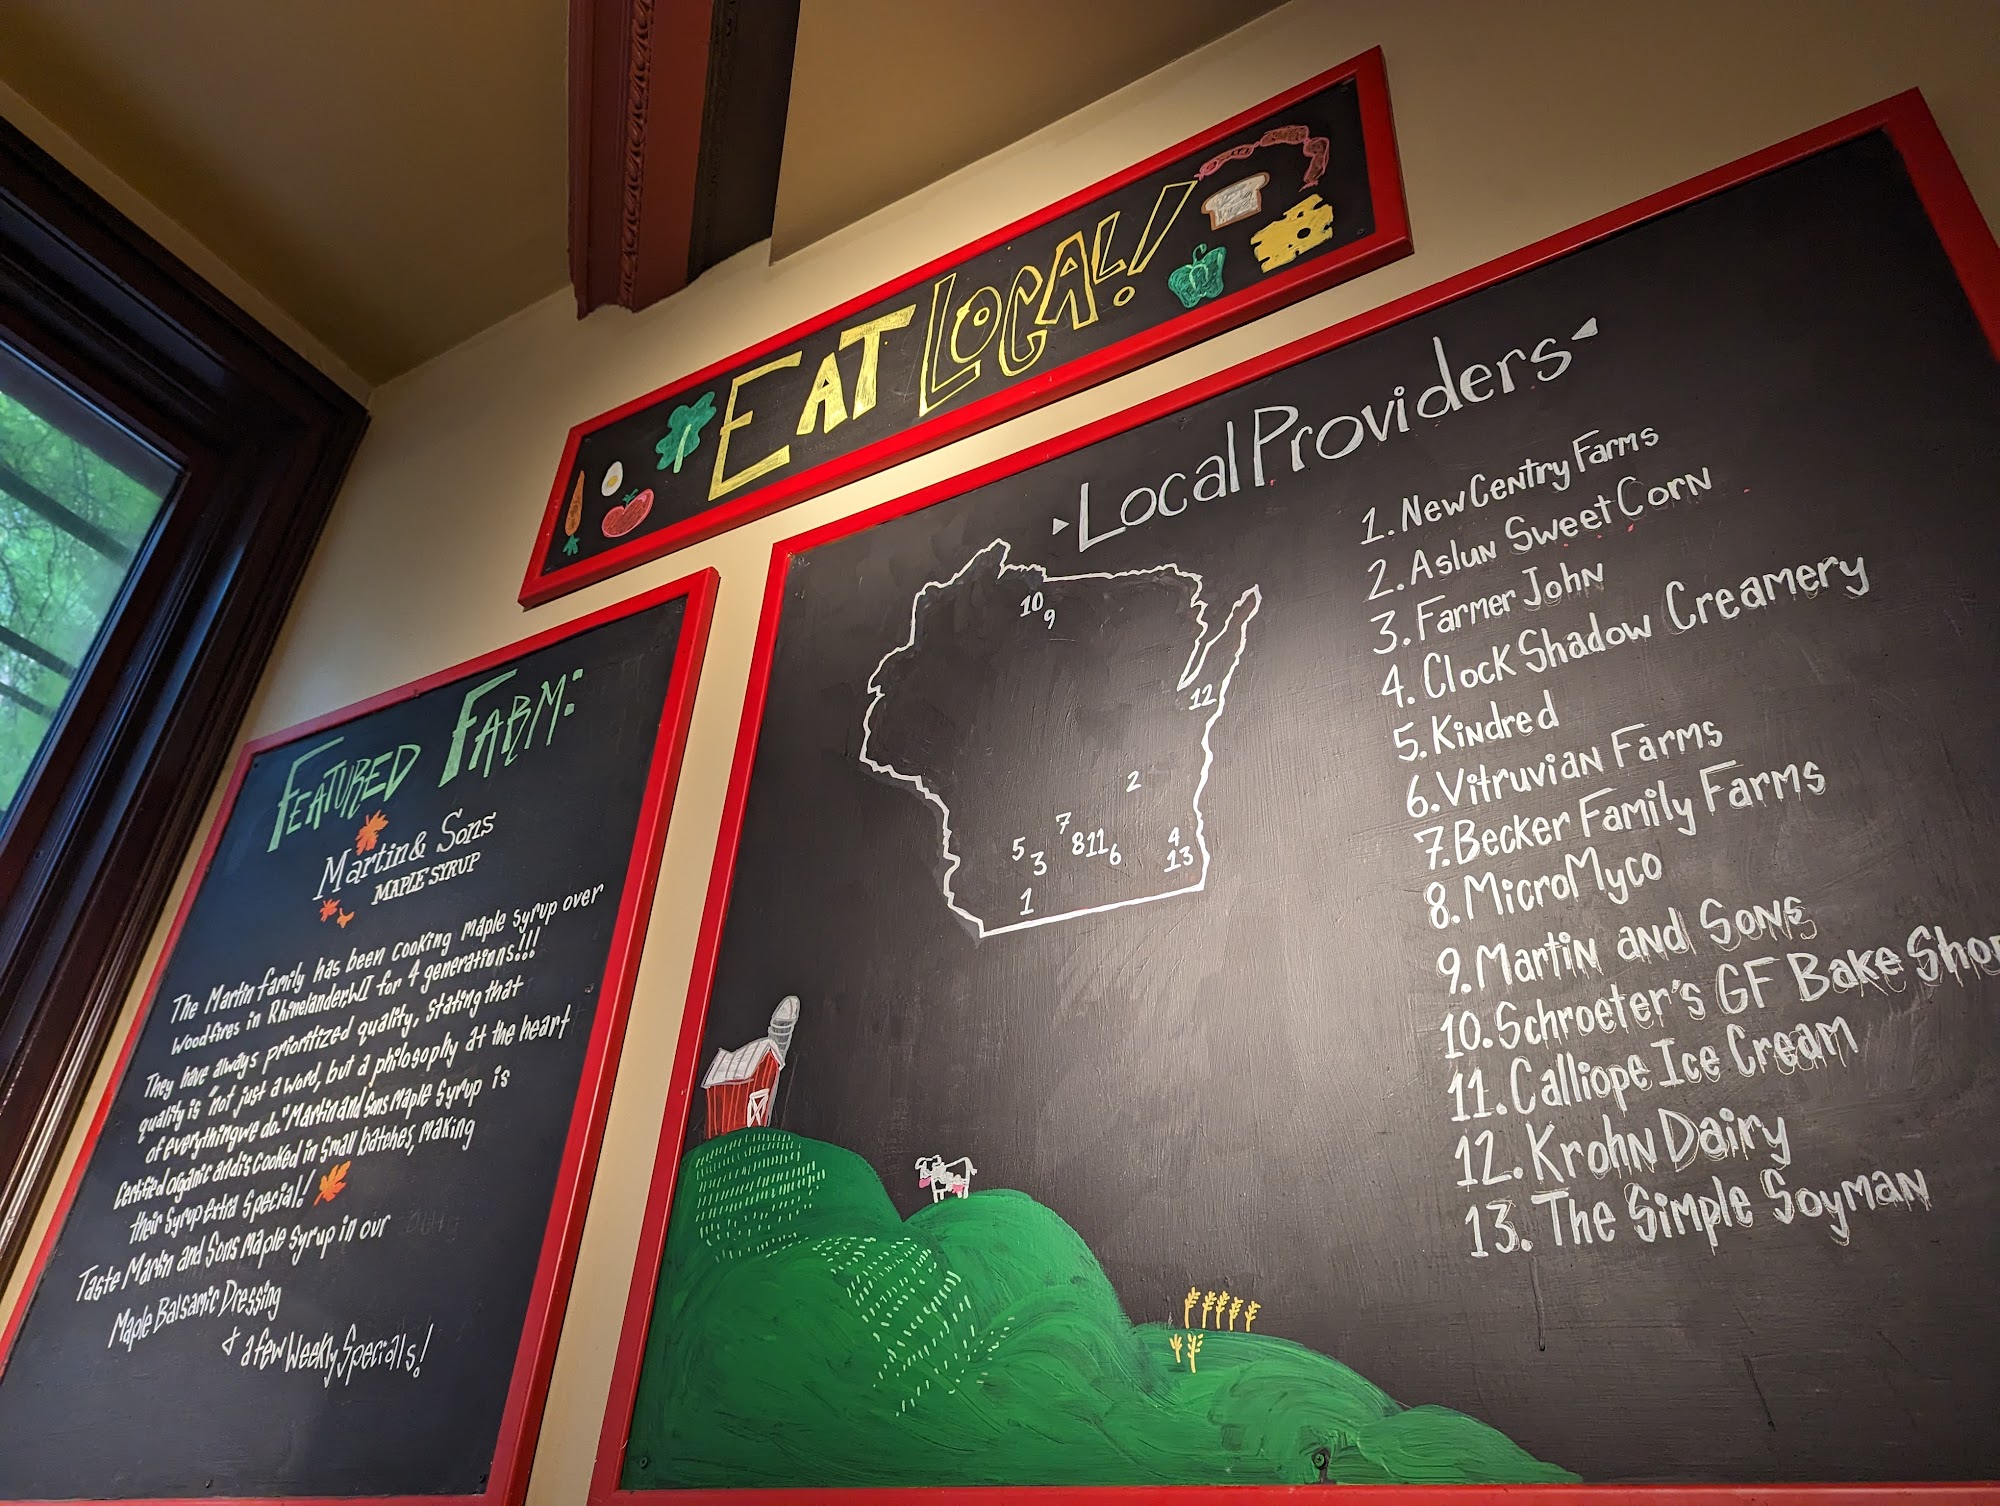 EAT LOCAL!
FEATURED FARM:
Martin & Sons
MAPLE SYRUP
The Martin family has been cooking maple syrup over
woodfires in Rhinelander, WI for 4 generations!!!
They have always prioritized quality, stating that
quality is "not just a word, but a philosophy at the heart
of everything we do." Martin and Sons Maple Syrup is
certified organic and is cooked in small batches, making
their syrup extra special!
Taste Martin and Sons maple syrup in our
Maple Balsamic Dressing
& a few Weekly Specials!
Local Providers
10
9
12
2
7
5
3
8 11
6
4
13
1
1. New Centry Farms
2. Aslun Sweet Corn
3. Farmer John
4. Clock Shadow Creamery
5. Kindred
6. Vitruvian Farms
7. Becker Family Farms
8. MicroMyco
9. Martin and Sons
10. Schroeter's GF Bake Shop
11. Calliope Ice Cream
12. Krohn Dairy
13. The Simple Soyman